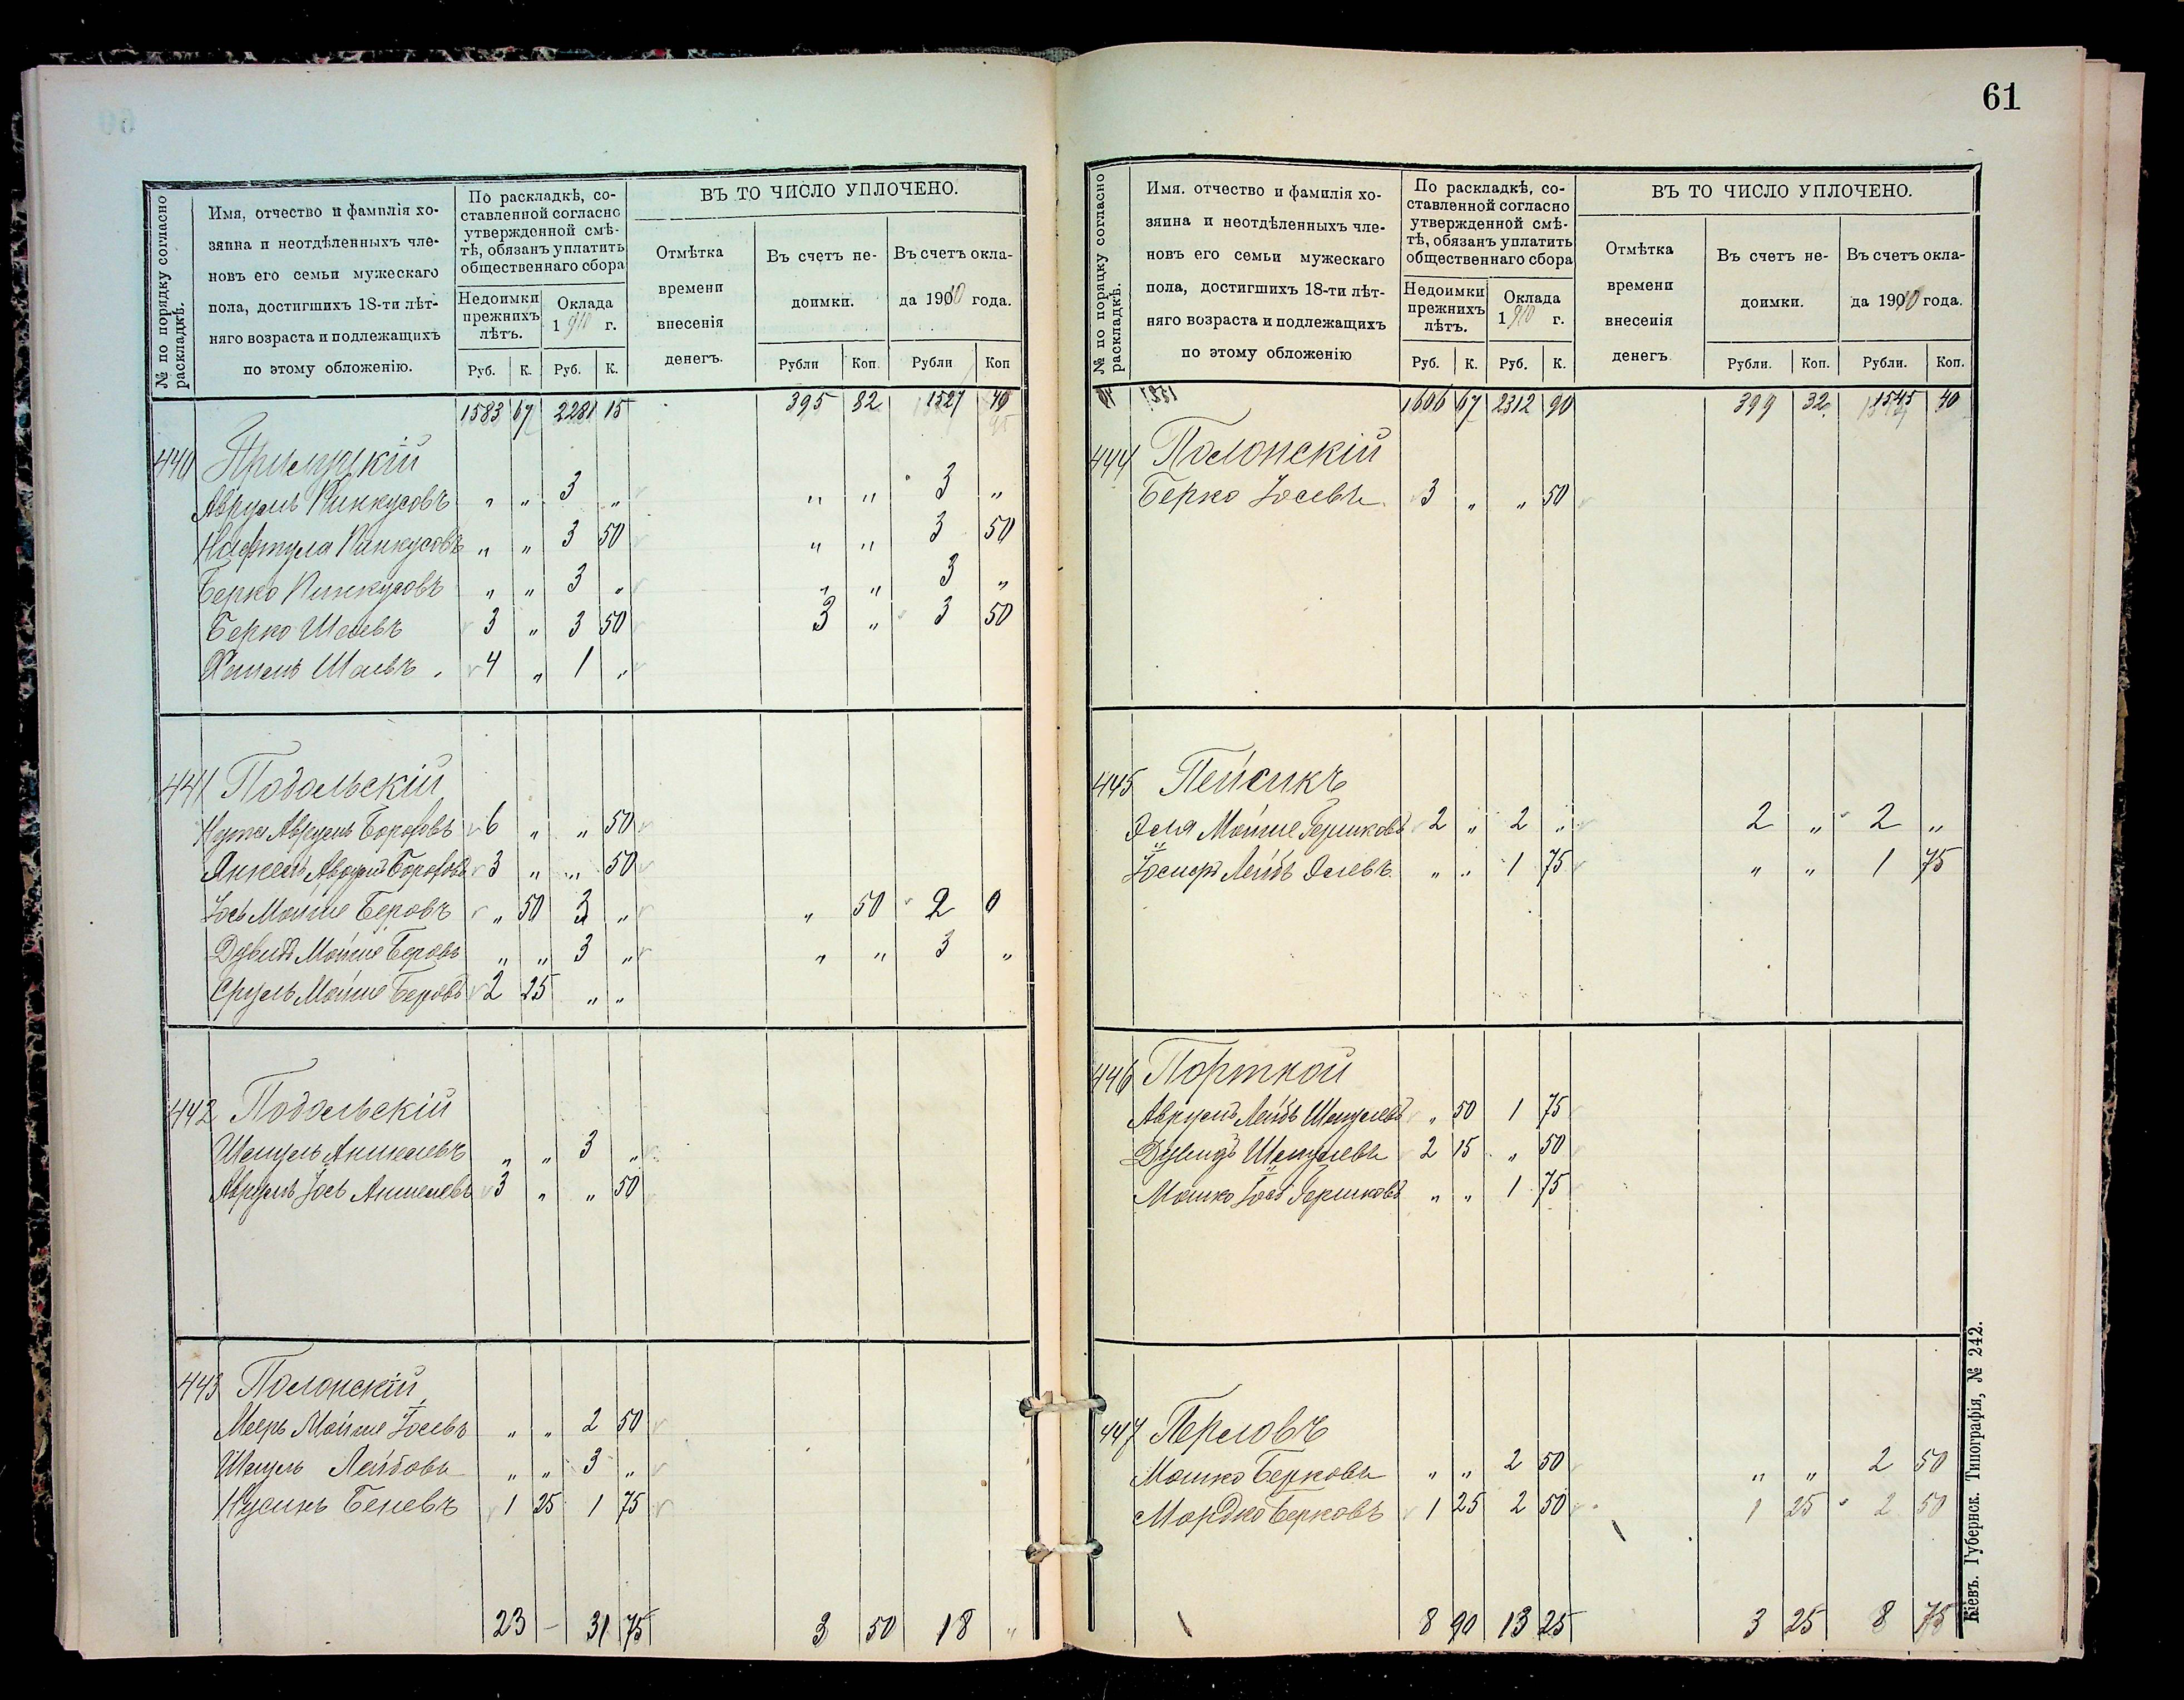 61
№ по порядку согласно раскладкѣ.
Имя, отчество и фамилія хо-
зяина и неотдѣленныхъ чле-
новъ его семьи мужескаго
пола, достигшихъ 18-ти лѣт-
няго возраста и подлежащихъ
по этому обложенію.
По раскладкѣ, со-
ставленной согласно
утвержденной смѣ-
тѣ, обязанъ уплатить
общественнаго сбора
Недоимки прежнихъ лѣтъ.
Оклада 1910 г.
ВЪ ТО ЧИСЛО УПЛОЧЕНО.
Отмѣтка времени внесенія денегъ.
Въ счетъ не-
доимки.
Въ счетъ окла-
да 1910 года.
Руб. К. Руб. К. Рубли Коп. Рубли Коп
1583 67 2281 15 395 82 1527 40
440 Прилуцкій
Аврумъ Пинкусовъ „ „ 3 „ „ „ 3 „
Нафтула Пинкусовъ „ „ 3 50 „ „ 3 50
Берко Пинкусовъ „ „ 3 „ „ „ 3 „
Берко Шаевъ 3 „ 3 50 3 „ 3 50
Шаевъ 4 „ 1 „
441 Подольскій
Нута Аврумъ Боруховъ 6 „ „ 50
Янкель Аврумъ Боруховъ 3 „ „ 50
Іось Мойше Беровъ „ 50 3 „ „ 50 2 0
Дувидъ Мойше Беровъ „ „ 3 „ „ „ 3 „
Сруль Мойше Беровъ 2 25 „ „
442 Подольскій
Шмуль Аншелевъ „ „ 3 „
Аврумъ Іось Аншелевъ 3 „ „ 50
443 Полонскій
Мееръ Мойше Іосевъ „ „ 2 50
Шмуль Лейбовъ „ „ 3 „
Нусинъ Беневъ 1 25 1 75
23 – 31 75 3 50 18 „
№ по порядку согласно раскладкѣ.
Имя. отчество и фамилія хо-
зяина и неотдѣленныхъ чле-
новъ его семьи мужескаго
пола, достигшихъ 18-ти лѣт-
няго возраста и подлежащихъ
по этому обложенію
По раскладкѣ, со-
ставленной согласно
утвержденной смѣ-
тѣ, обязанъ уплатить
общественнаго сбора
Недоимки прежнихъ лѣтъ.
Оклада 1910 г.
ВЪ ТО ЧИСЛО УПЛОЧЕНО.
Отмѣтка времени внесенія денегъ
Въ счетъ не-
доимки.
Въ счетъ окла-
да 1910 года.
Руб. К. Руб. К. Рубли. Коп. Рубли. Коп.
1606 67 2312 90 399 32 1545 40
444 Полонскій
Берко Іосевъ 3 „ „ 50
445 Пейсикъ
Эля Мойше Гершковъ 2 „ 2 „ 2 „ 2 „
Іосифъ Лейбъ Элевъ „ „ 1 75 „ „ 1 75
446 Порткой
Аврумъ Лейбъ Шмулевъ „ 50 1 75
Дувидъ Шмулевъ 2 15 „ 50
Мошко Іось Гершковъ „ „ 1 75
447 Перловъ
Мошко Берковъ „ „ 2 50 „ „ 2 50
Мордко Берковъ 1 25 2 50 1 25 2 50
8 90 13 25 3 25 8 75
Кіевъ. Губернск. Типографія, № 242.